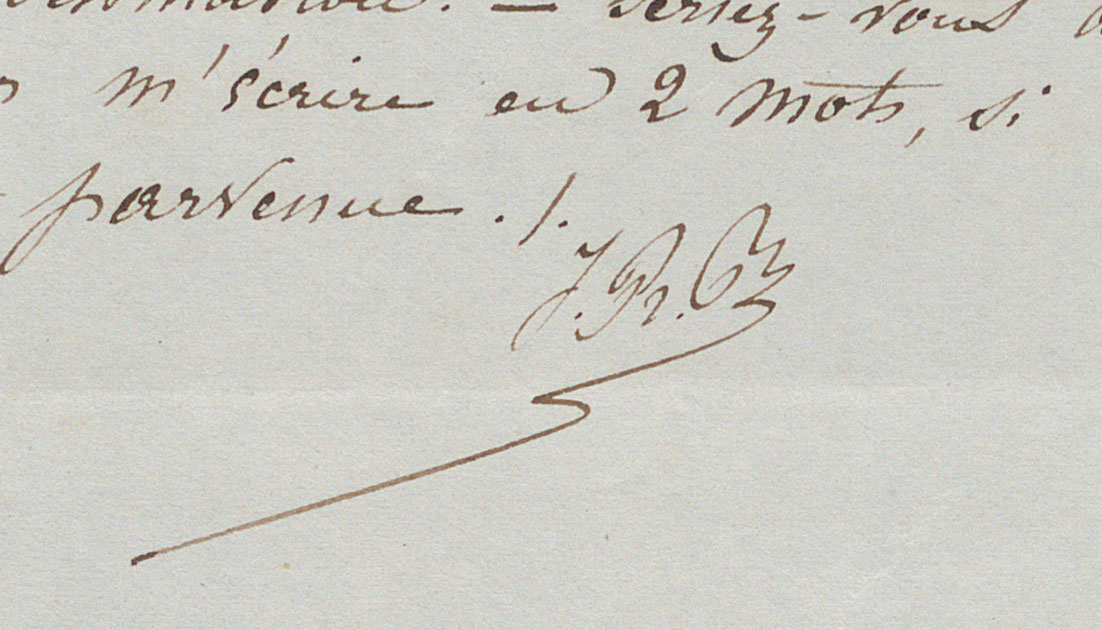 seriez-vous
m'écrire en 2 mots, si
parvenue ./.
J. Pr.